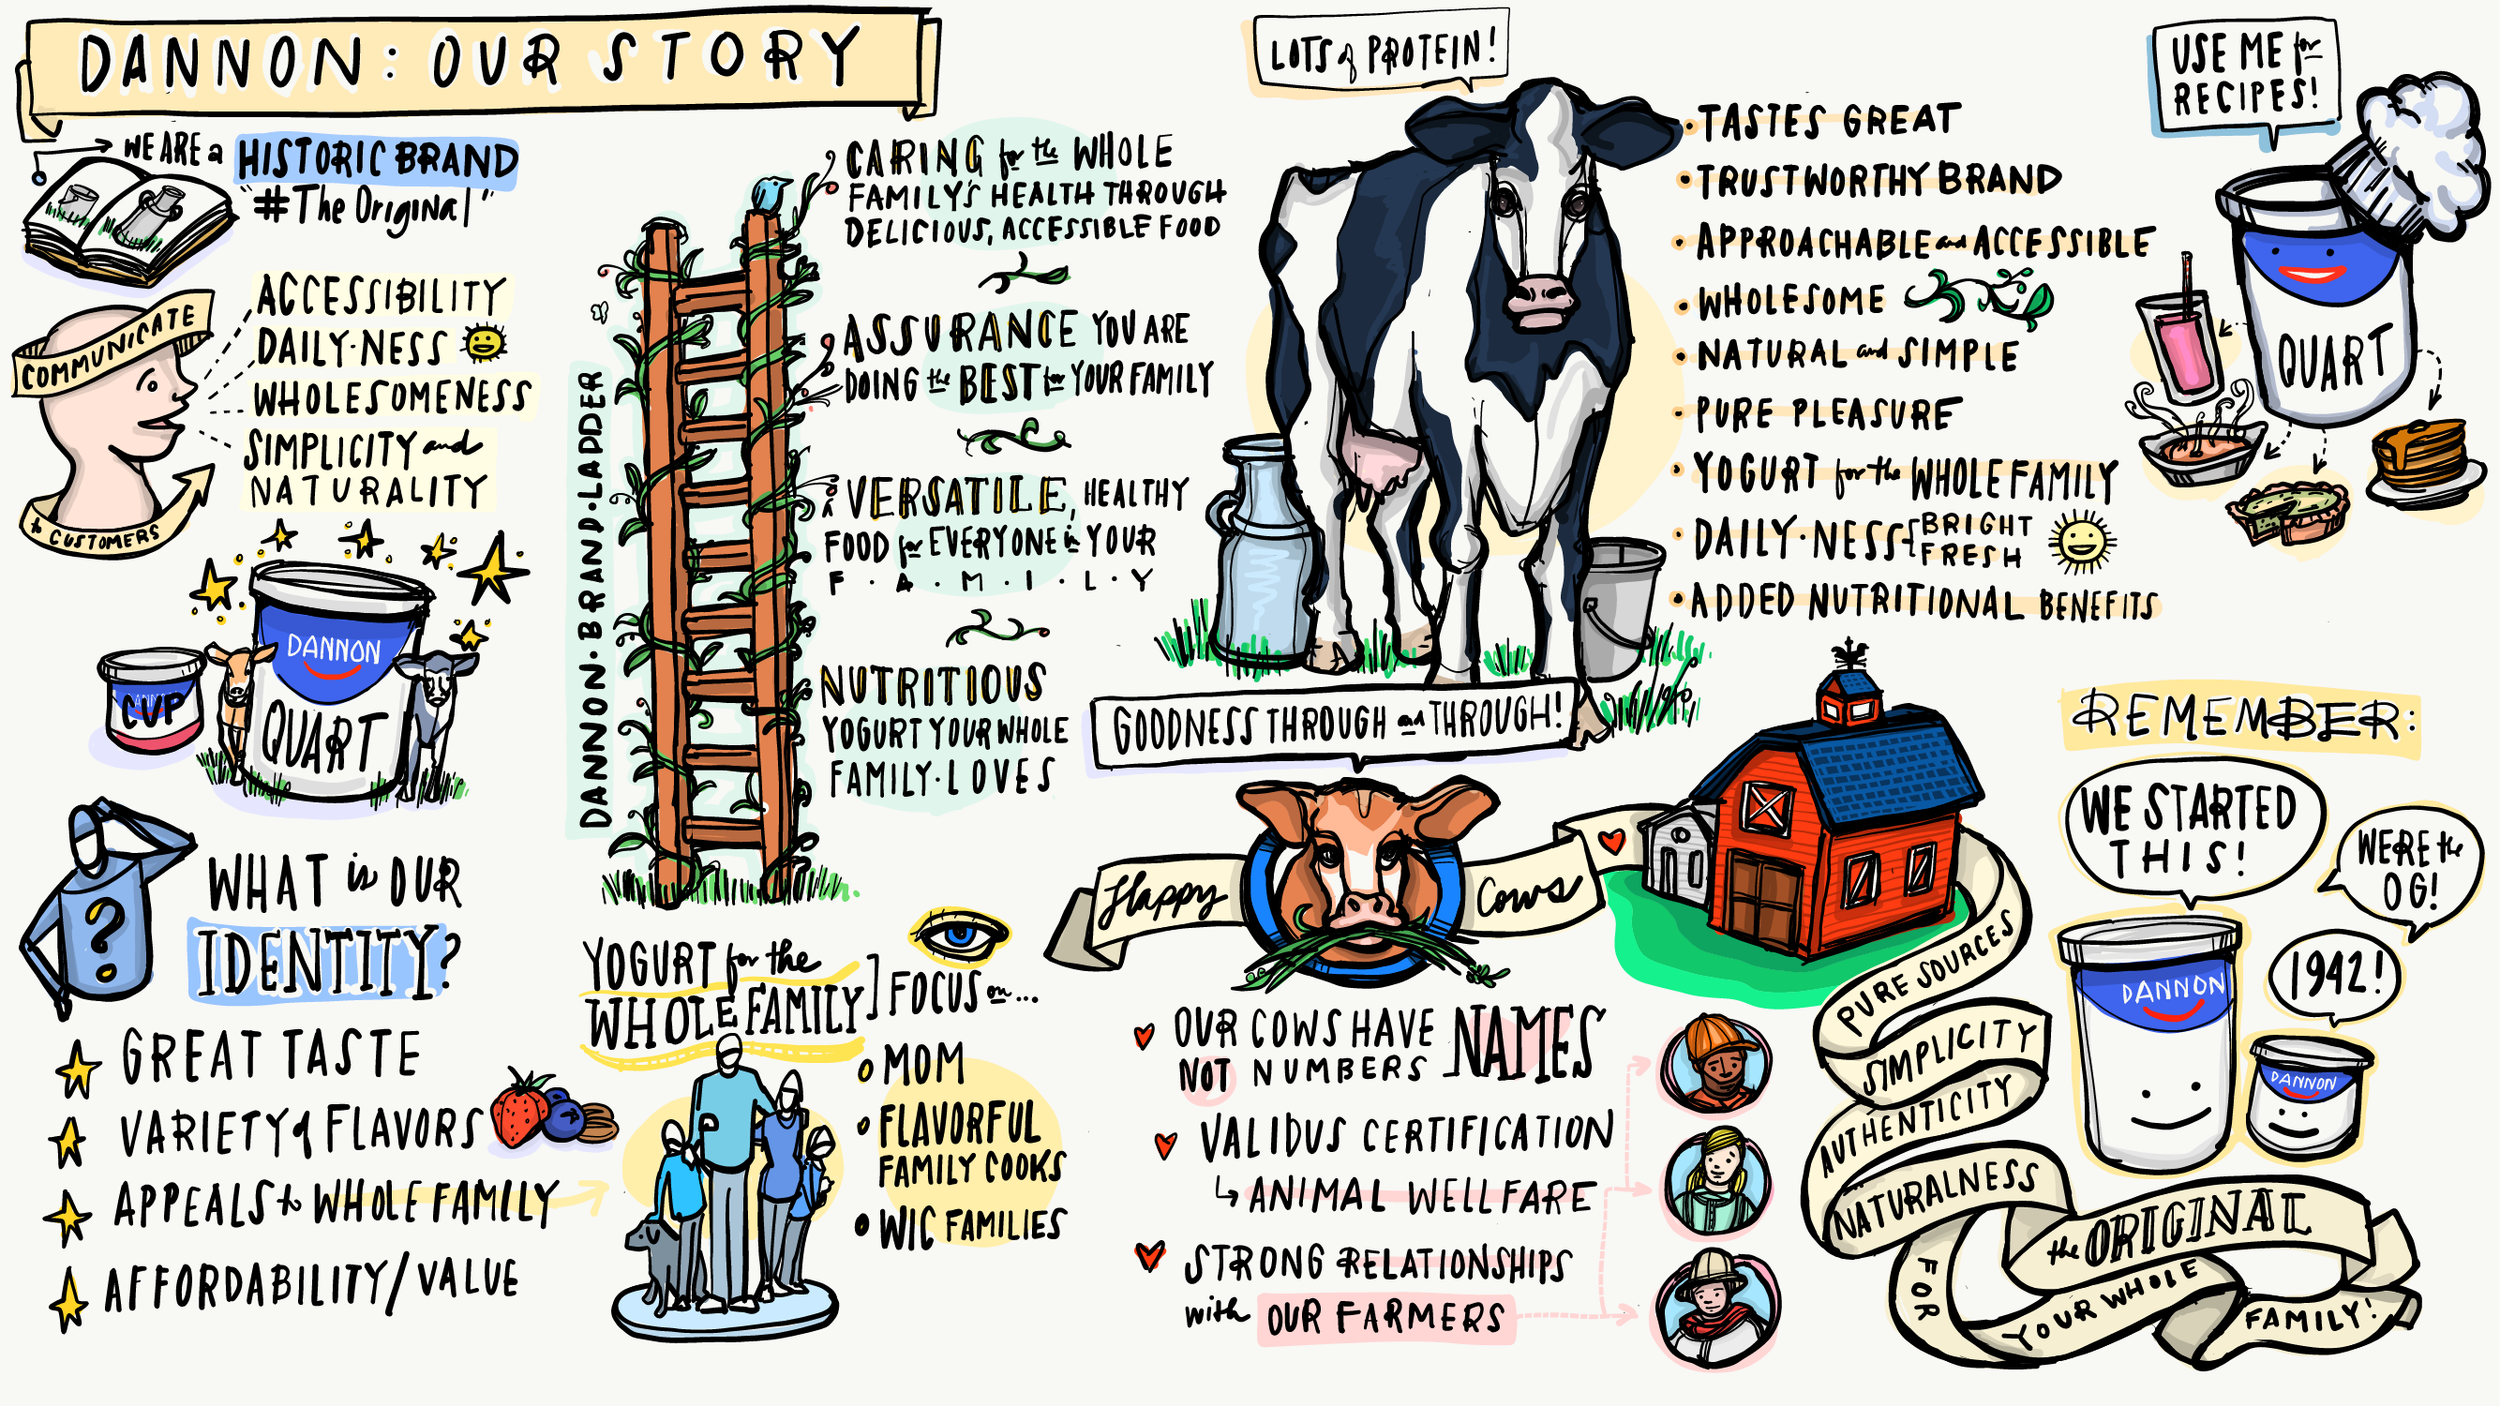 DANNON: OUR STORY
WE ARE a HISTORIC BRAND
"#The Original"
COMMUNICATE
to CUSTOMERS
ACCESSIBILITY
DAILY·NESS
WHOLESOMENESS
SIMPLICITY and
NATURALITY
DANNON
CUP
QUART
WHAT is OUR
IDENTITY?
?
GREAT TASTE
VARIETY of FLAVORS
APPEALS to WHOLE FAMILY
AFFORDABILITY/VALUE
DANNON·BRAND·LADDER
CARING for the WHOLE
FAMILY'S HEALTH THROUGH
DELICIOUS, ACCESSIBLE FOOD
ASSURANCE YOU ARE
DOING the BEST for YOUR FAMILY
A VERSATILE, HEALTHY
FOOD for EVERYONE in YOUR
F·A·M·I·L·Y
NUTRITIOUS
YOGURT YOUR WHOLE
FAMILY·LOVES
YOGURT for the
WHOLE FAMILY] FOCUS on...
MOM
FLAVORFUL
FAMILY COOKS
WIC FAMILIES
LOTS of PROTEIN!
• TASTES GREAT
• TRUSTWORTHY BRAND
• APPROACHABLE and ACCESSIBLE
• WHOLESOME
• NATURAL and SIMPLE
• PURE PLEASURE
• YOGURT for the WHOLE FAMILY
• DAILY·NESS{BRIGHT
FRESH
• ADDED NUTRITIONAL BENEFITS
USE ME for
RECIPES!
QUART
GOODNESS THROUGH and THROUGH!
Happy Cows
OUR COWS HAVE NAMES
NOT NUMBERS
VALIDUS CERTIFICATION
↳ ANIMAL WELLFARE
STRONG RELATIONSHIPS
with OUR FARMERS
PURE SOURCES
SIMPLICITY
AUTHENTICITY
NATURALNESS
REMEMBER:
WE STARTED
THIS!
WERE the
OG!
1942!
DANNON
DANNON
the ORIGINAL
FOR
YOUR WHOLE
FAMILY!